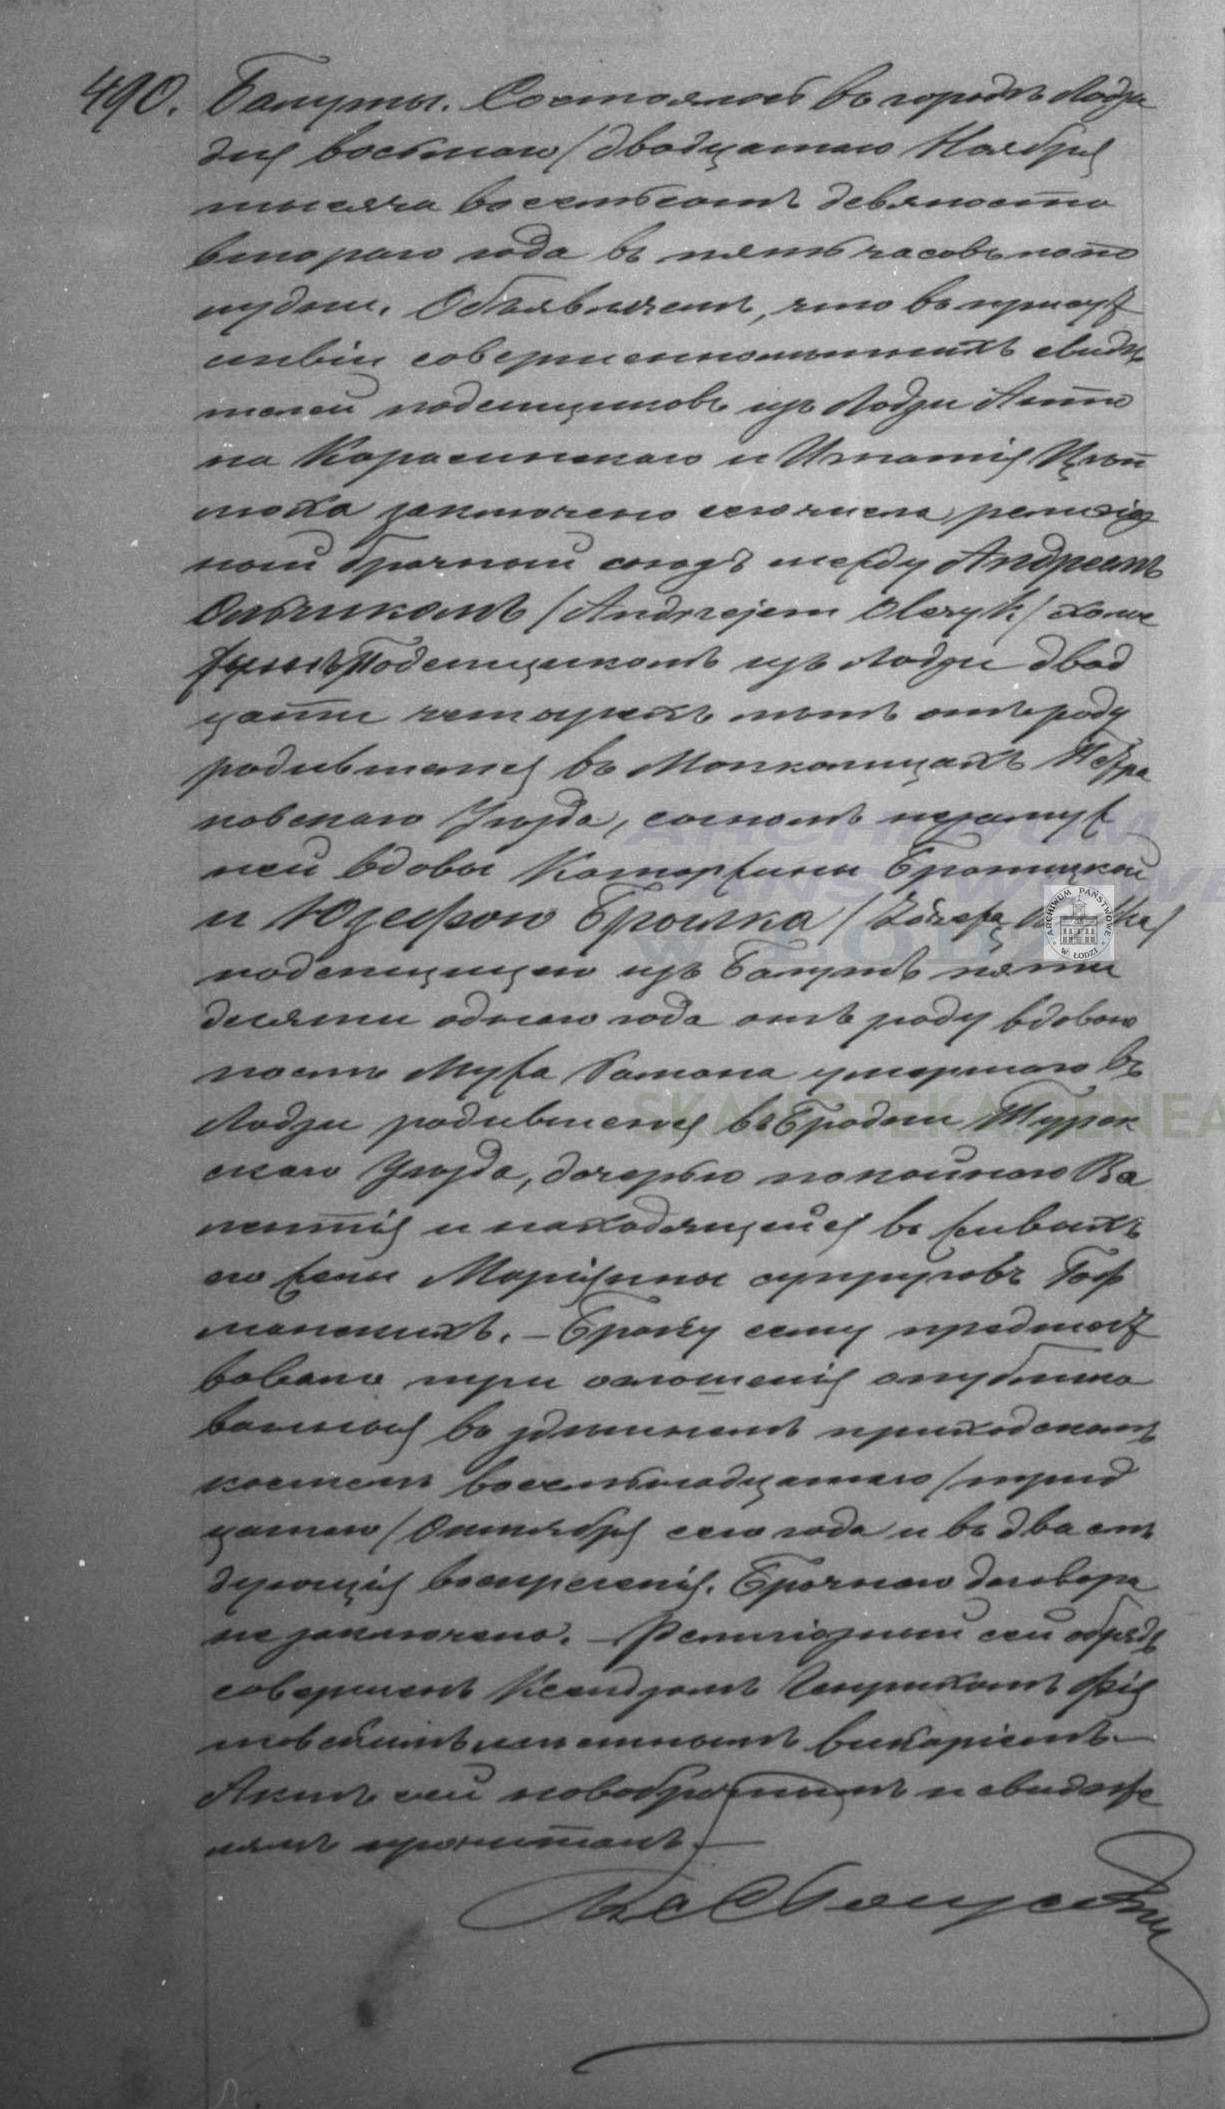 490. Балуты. Состоялось въ городѣ Лодзи
дня восьмаго/двадцатаго Ноября
тысяча восемьсотъ девяносто
втораго года въ пять часовъ попо
лудни. Объявляемъ, что въ присут
ствіи совершеннолѣтнихъ свидѣ
телей поденщиковъ изъ Лодзи Анто
на Карасинскаго и Игнатія
заключено сего числа религіоз
ный брачный союзъ между Андреемъ
Ольчикомъ /Andrzejem Olczyk/ холо
стымъ Поденщикомъ изъ Лодзи двад
цати четырехъ лѣтъ отъ роду
родившемся въ Петро
ковскаго Уѣзда, сыномъ незамуж
ней вдовы Катаржины
и Юзефою /Józefą
поденщицею изъ Балутъ пяти
десяти одного года отъ роду вдовою
послѣ мужа умершаго въ
Лодзи родившеюся въ Бродни Турек
скаго Уѣзда, дочерью покойнаго Ва
лентія и находящейся въ живыхъ
его жены Маріянны супруговъ Гоф
манскихъ. — Браку сему предшест
вовали три оглашенія опублико
ванныя въ здѣшнемъ приходскомъ
костелѣ восемьнадцатаго/трид
цатаго/Октября сего года и въ два слѣ
дующія воскресенія. Брачнаго договора
не заключено. — Религіозный сей обрядъ
совершенъ Ксендзомъ Генрикомъ
мѣстнымъ викаріемъ. —
Актъ сей новобрачнымъ и свидѣте
лямъ прочитанъ. —
ARCHIWUM
PAŃSTWOWE
W ŁODZI
ARCHIWUM PAŃSTWOWE W ŁODZI
SKANOTEKA.GENEA